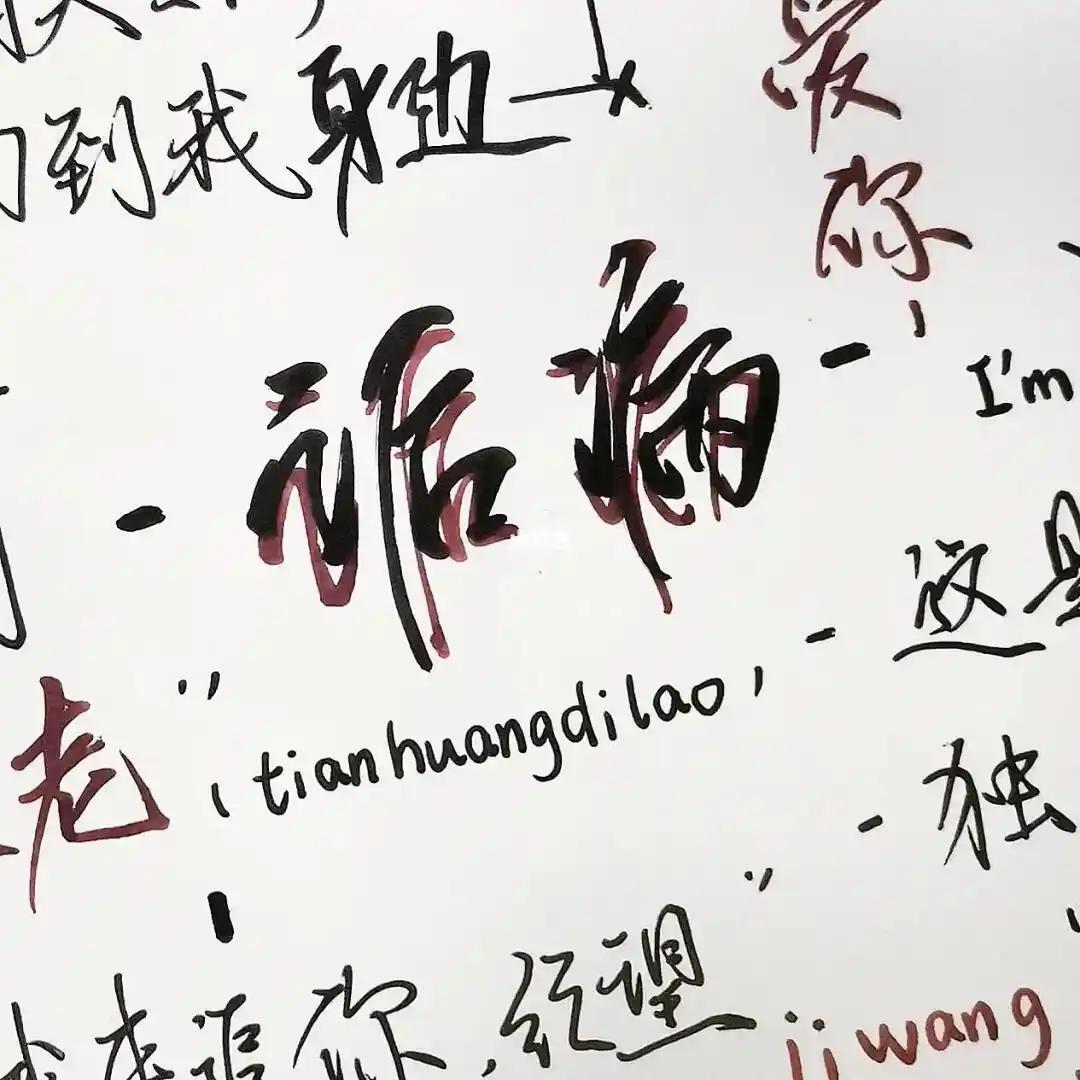 到我身边
爱你
诟病
I'm
这是
老
(tianhuangdilao)
独
我来追你
jiwang